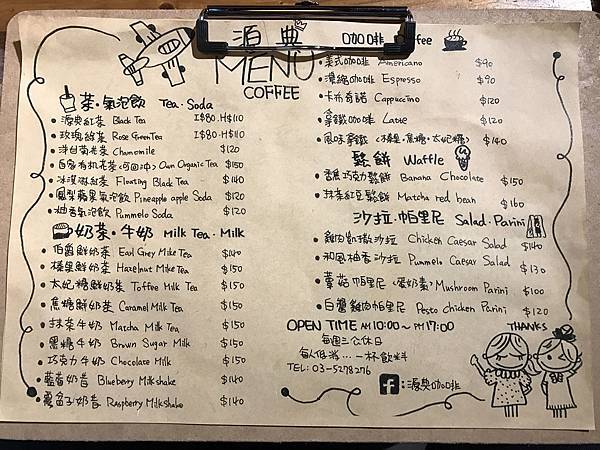 源典
MENU
COFFEE
茶·氣泡飲 Tea·Soda
源典紅茶 Black Tea I$80·H$110
玫瑰綠茶 Rose GreenTea I$80·H$110
洋甘菊花茶 Chamomile $120
自家有机花茶<可回冲> Own Organic Tea $150
冰淇淋紅茶 Floating Black Tea $140
鳳梨蘋果氣泡飲 Pineapple apple Soda $120
柚香氣泡飲 Pummelo Soda $120
奶茶·牛奶 Milk Tea·Milk
伯爵鮮奶茶 Earl Grey Mike Tea $140
榛果鮮奶茶 Hazelnut Mike Tea $150
太妃糖鮮奶茶 Toffee Milk Tea $150
焦糖鮮奶茶 Caramel Milk Tea $150
抹茶牛奶 Matcha Milk Tea $150
黑糖牛奶 Brown Sugar Milk $150
巧克力牛奶 Chocolate Milk $150
藍莓奶昔 Blueberry Milkshake $140
覆盆子奶昔 Raspberry Milkshake $140
咖啡
美式咖啡 Americano $90
濃縮咖啡 Espresso $90
卡布奇諾 Cappuccino $120
拿鐵咖啡 Latte $120
風味拿鐵 <榛果·焦糖·太妃糖> $140
鬆餅 Waffle
香蕉巧克力鬆餅 Banana Chocolate $150
抹茶紅豆鬆餅 Matcha red bean $160
沙拉·帕里尼 Salad·Parini
雞肉凱撒沙拉 Chicken Caesar Salad $140
和風柚香沙拉 Pummelo Caesar Salad $130
蕈菇帕里尼<蛋奶素> Mushroom Parini $100
白醬雞肉帕里尼 Pesto Chicken Parini $120
OPEN TIME AM10:00~PM17:00
每週三公休日
每人低消...一杯飲料
TEL:03-5278276
f:源典咖啡
THANKS